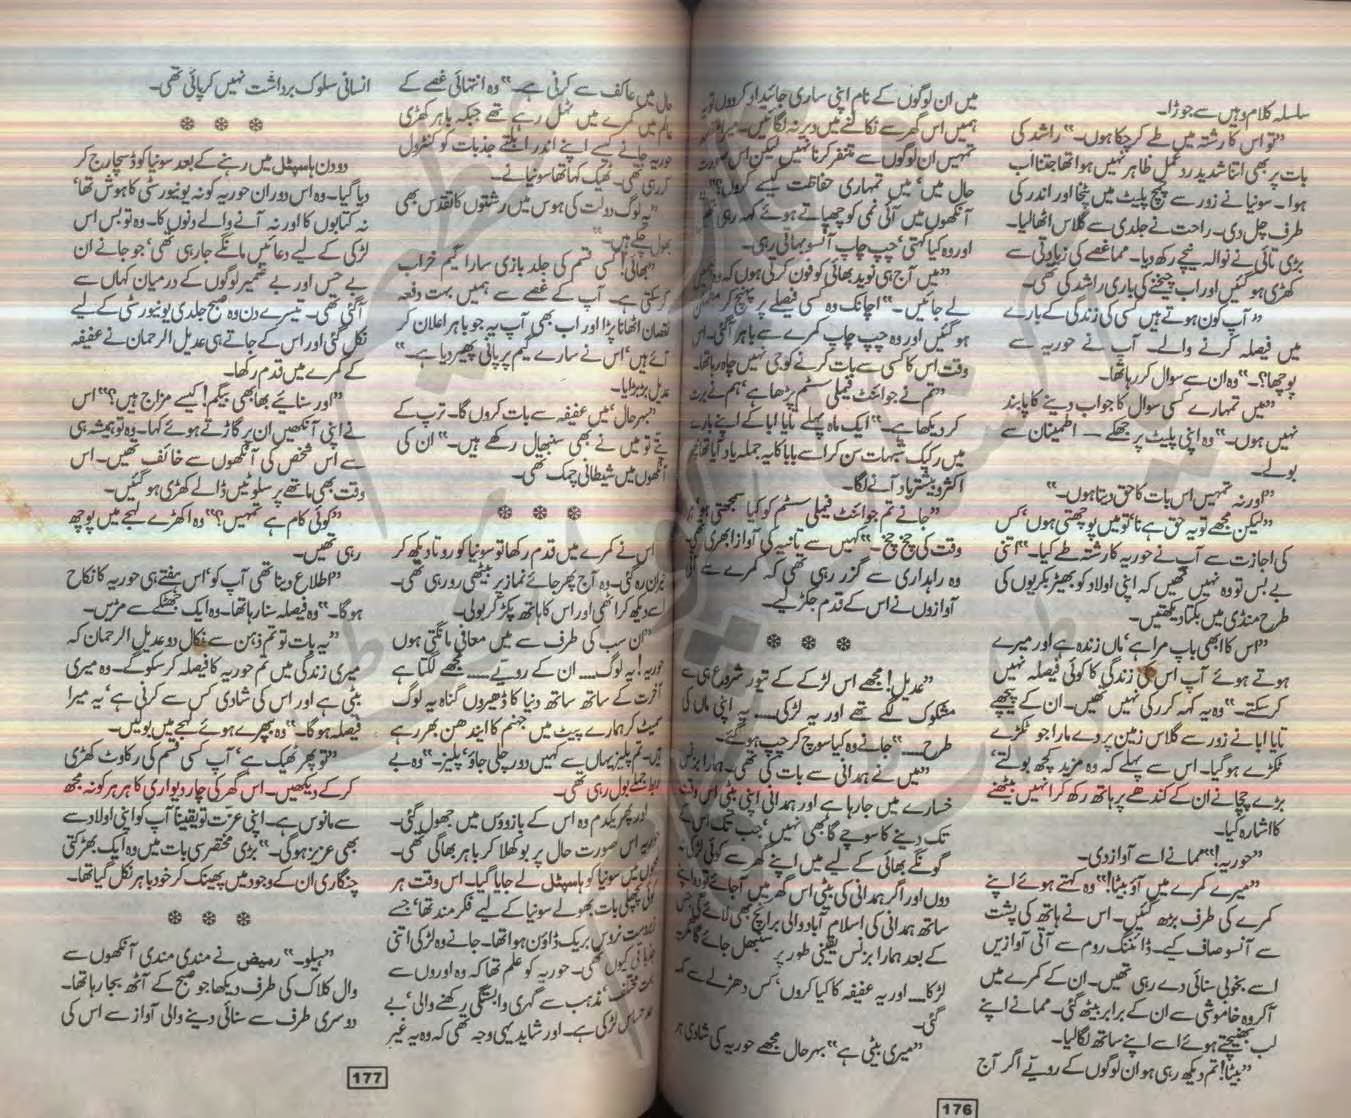 سلسلہ کلام وہیں سے جوڑا۔
”تو اس کا رشتہ میں طے کر چکا ہوں۔“ راشد کی
بات پر بھی اتنا شدید ردعمل ظاہر نہیں ہوا تھا جتنا اب
ہوا۔ سونیا نے زور سے چمچ پلیٹ میں پٹخا اور اندر کی
طرف چل دی۔ راحت نے جلدی سے گلاس اٹھا لیا۔
بڑی تائی نے نوالہ نیچے رکھ دیا۔ مما غصے کی زیادتی سے
کھڑی ہو گئیں اور اب چیخنے کی باری راشد کی تھی۔
”آپ کون ہوتے ہیں کسی کی زندگی کے بارے
میں فیصلہ کرنے والے۔ آپ نے حوریہ سے
پوچھا؟۔“ وہ ان سے سوال کر رہا تھا۔
”میں تمہارے کسی سوال کا جواب دینے کا پابند
نہیں ہوں۔“ وہ اپنی پلیٹ پر جھکے — اطمینان سے
بولے۔
”اور نہ تمہیں اس بات کا حق دیتا ہوں۔“
”لیکن مجھے تو یہ حق ہے نا‘ تو میں پوچھتی ہوں‘ کس
کی اجازت سے آپ نے حوریہ کا رشتہ طے کیا۔“ اتنی
بے بس تو وہ نہیں تھیں کہ اپنی اولاد کو بھیڑ بکریوں کی
طرح منڈی میں بکتا دیکھتیں۔
”اس کا ابھی باپ مرا ہے‘ ماں زندہ ہے اور میرے
ہوتے ہوئے آپ اس کی زندگی کا کوئی فیصلہ نہیں
کر سکتے۔“ وہ یہ کہہ کر رکی نہیں تھیں۔ ان کے پیچھے
تایا ابا نے زور سے گلاس زمین پر دے مارا جو ٹکڑے
ٹکڑے ہو گیا۔ اس سے پہلے کہ وہ مزید کچھ بولتے‘
بڑے چچا نے ان کے کندھے پر ہاتھ رکھ کر انہیں بیٹھنے
کا اشارہ کیا۔
”حوریہ!“ ممانے اسے آواز دی۔
”میرے کمرے میں آؤ بیٹا!“ وہ کہتے ہوئے اپنے
کمرے کی طرف بڑھ گئیں۔ اس نے ہاتھ کی پشت
سے آنسو صاف کیے۔ ڈائننگ روم سے آتی آوازیں
اسے بخوبی سنائی دے رہی تھیں۔ ان کے کمرے میں
آ کر وہ خاموشی سے ان کے برابر بیٹھ گئی۔ ممانے اپنے
لب بھینچتے ہوئے اسے اپنے ساتھ لگا لیا۔
”بیٹا! تم دیکھ رہی ہو ان لوگوں کے رویے اگر آج
میں ان لوگوں کے نام اپنی ساری جائیداد کر دوں تو یہ
ہمیں اس گھر سے نکالنے میں دیر نہ لگائیں۔
تمہیں ان لوگوں سے متنفر کرنا نہیں لیکن اس صورت
حال میں‘ میں تمہاری حفاظت کیسے کروں؟“
آنکھوں میں آئی نمی کو چھپاتے ہوئے کہہ رہی تھیں
اور وہ کیا کہتی‘ چپ چاپ آنسو بہاتی رہی۔
”میں آج ہی نوید بھائی کو فون کرتی ہوں کہ وہ تمہیں
لے جائیں۔“ اچانک وہ کسی فیصلے پر پہنچ کر
ہو گئیں اور وہ چپ چاپ کمرے سے باہر آگئی۔ اس
وقت اس کا کسی سے بات کرنے کو جی نہیں چاہ رہا تھا۔
”تم نے جوائنٹ فیملی سسٹم پڑھا ہے‘ ہم نے برت
کر دیکھا ہے۔“ ایک ماہ پہلے تایا ابا کے اپنے بارے
میں رکیک شبہات سن کر اسے بابا کا یہ جملہ یاد آیا تھا
اکثر و بیشتر یاد آنے لگا۔
”جانے تم جوائنٹ فیملی سسٹم کو کیا سمجھتی ہو‘ ہر
وقت کی چخ چخ۔“ کہیں سے تانیہ کی آواز ابھری تھی۔
وہ راہداری سے گزر رہی تھی کہ کمرے سے آتی
آوازوں نے اس کے قدم جکڑ لیے۔
❆ ❆ ❆
”عدیل! مجھے اس لڑکے کے تیور شروع ہی سے
مشکوک لگے تھے اور یہ لڑکی۔۔۔۔ یہ اپنی ماں کی
طرح۔۔۔۔“ جانے وہ کیا سوچ کر چپ ہو گئے۔
”میں نے ہمدانی سے بات کی تھی۔ ہمارا بزنس
خسارے میں جا رہا ہے اور ہمدانی اپنی بیٹی اس وقت
تک دینے کا سوچے گا بھی نہیں‘ جب تک اس کے
گونگے بھائی کے لیے میں اپنے گھر سے کوئی لڑکی نہ
دوں اور اگر ہمدانی کی بیٹی اس گھر میں آجائے تو وہ اپنے
ساتھ ہمدانی کی اسلام آباد والی برانچ بھی لائے گی جس
کے بعد ہمارا بزنس یقینی طور پر سنبھل جائے گا مگر یہ
لڑکا۔۔۔۔ اور یہ عفیفہ کا کیا کروں‘ کس دھڑلے سے کہہ
گئی۔
”میری بیٹی ہے“ بہرحال مجھے حوریہ کی شادی ہر
176
حال میں عاکف سے کرنی ہے۔“ وہ انتہائی غصے کے
عالم میں کمرے میں ٹہل رہے تھے جبکہ باہر کھڑی
حوریہ جانے کیسے اپنے اندر ابلتے جذبات کو کنٹرول
کر رہی تھی۔ ٹھیک کہا تھا سونیا نے۔
”یہ لوگ دولت کی ہوس میں رشتوں کا تقدس بھی
بھول چکے ہیں۔“
”بھائی! کسی قسم کی جلد بازی سارا گیم خراب
کر سکتی ہے۔ آپ کے غصے سے ہمیں بہت دفعہ
نقصان اٹھانا پڑا اور اب بھی آپ یہ جو باہر اعلان کر
آئے ہیں‘ اس نے سارے گیم پر پانی پھیر دیا ہے۔“
عدیل بڑبڑایا۔
”بہرحال‘ میں عفیفہ سے بات کروں گا۔ ترپ کے
پتے تو میں نے بھی سنبھال رکھے ہیں۔“ ان کی
آنکھوں میں شیطانی چمک تھی۔
❆ ❆ ❆
اس نے کمرے میں قدم رکھا تو سونیا کو روتا دیکھ کر
حیران رہ گئی۔ وہ آج پھر جائے نماز پر بیٹھی رو رہی تھی۔
اسے دیکھ کر اٹھی اور اس کا ہاتھ پکڑ کر بولی۔
”ان سب کی طرف سے میں معافی مانگتی ہوں
حوریہ! یہ لوگ۔۔۔۔ ان کے رویے۔۔۔۔ مجھے لگتا ہے
آخرت کے ساتھ ساتھ دنیا کا ڈھیروں گناہ یہ لوگ
سمیٹ کر ہمارے پیٹ میں جہنم کا ایندھن بھر رہے
ہیں۔ تم پلیز یہاں سے کہیں دور چلی جاؤ‘ پلیز۔“ وہ بے
ربط جملے بول رہی تھی۔
اور پھر یکدم وہ اس کے بازوؤں میں جھول گئی۔
حوریہ اس صورت حال پر بوکھلا کر باہر بھاگی تھی۔
میں سونیا کو ہاسپٹل لے جایا گیا۔ اس وقت ہر
کوئی پچھلی بات بھولے سونیا کے لیے فکر مند تھا‘ جسے
زبردست نروس بریک ڈاؤن ہوا تھا۔ جانے وہ لڑکی اتنی
جذباتی کیوں تھی۔ حوریہ کو علم تھا کہ وہ اوروں سے
بہت مختلف‘ مذہب سے گہری وابستگی رکھنے والی‘ بے
حد حساس لڑکی ہے۔ اور شاید یہی وجہ تھی کہ وہ یہ غیر
انسانی سلوک برداشت نہیں کر پائی تھی۔
❆ ❆ ❆
دو دن ہاسپٹل میں رہنے کے بعد سونیا کو ڈسچارج کر
دیا گیا۔ وہ اس دوران حوریہ کو نہ یونیورسٹی کا ہوش تھا‘
نہ کتابوں کا اور نہ آنے والے دنوں کا۔ وہ تو بس اس
لڑکی کے لیے دعائیں مانگے جا رہی تھی‘ جو جانے ان
بے حس اور بے ضمیر لوگوں کے درمیان کہاں سے
آ گئی تھی۔ تیسرے دن وہ صبح جلدی یونیورسٹی کے لیے
نکل گئی اور اس کے جاتے ہی عدیل الرحمان نے عفیفہ
کے کمرے میں قدم رکھا۔
”اور سنائیے بھابھی بیگم! کیسے مزاج ہیں؟“ اس
نے اپنی آنکھیں ان پر گاڑتے ہوئے کہا۔ وہ تو ہمیشہ ہی
سے اس شخص کی آنکھوں سے خائف تھیں۔ اس
وقت بھی ماتھے پر سلوٹیں ڈالے کھڑی ہو گئیں۔
”کوئی کام ہے تمہیں؟“ وہ اکھڑے لہجے میں پوچھ
رہی تھیں۔
”اطلاع دینا تھی آپ کو‘ اس ہفتے ہی حوریہ کا نکاح
ہو گا۔“ وہ فیصلہ سنا رہا تھا۔ وہ ایک جھٹکے سے مڑیں۔
”یہ بات تو تم ذہن سے نکال دو عدیل الرحمان کہ
میری زندگی میں تم حوریہ کا فیصلہ کر سکو گے۔ وہ میری
بیٹی ہے اور اس کی شادی کس سے کرنی ہے‘ یہ میرا
فیصلہ ہو گا۔“ وہ بپھرے ہوئے لہجے میں بولیں۔
”تو پھر ٹھیک ہے‘ آپ کسی قسم کی رکاوٹ کھڑی
کر کے دیکھیں۔ اس گھر کی چار دیواری کا ہر ہر کونہ مجھ
سے مانوس ہے۔ اپنی عزت تو یقیناً آپ کو اپنی اولاد سے
بھی عزیز ہو گی۔“ بڑی مختصر سی بات میں وہ ایک بھڑکتی
چنگاری ان کے وجود میں پھینک کر خود باہر نکل گیا تھا۔
❆ ❆ ❆
”ہیلو۔“ رمیض نے مندی مندی آنکھوں سے
وال کلاک کی طرف دیکھا جو صبح کے آٹھ بجا رہا تھا۔
دوسری طرف سے سنائی دینے والی آواز سے اس کی
177